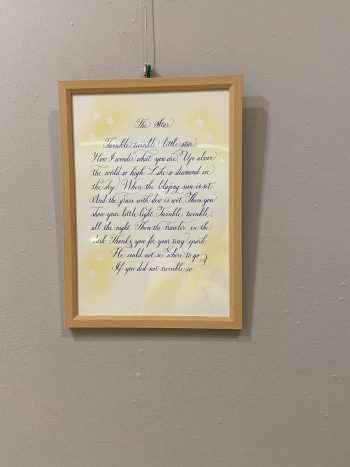 The Star
Twinkle, twinkle, little star
How I wonder what you are. Up above
the world so high, Like a diamond in
the sky. When the blazing sun is set
And the grass with dew is wet, Then you
show your little light Twinkle, twinkle
all the night. Then the traveler in the
dark Thanks you for your tiny spark
He could not see where to go
If you did not twinkle so